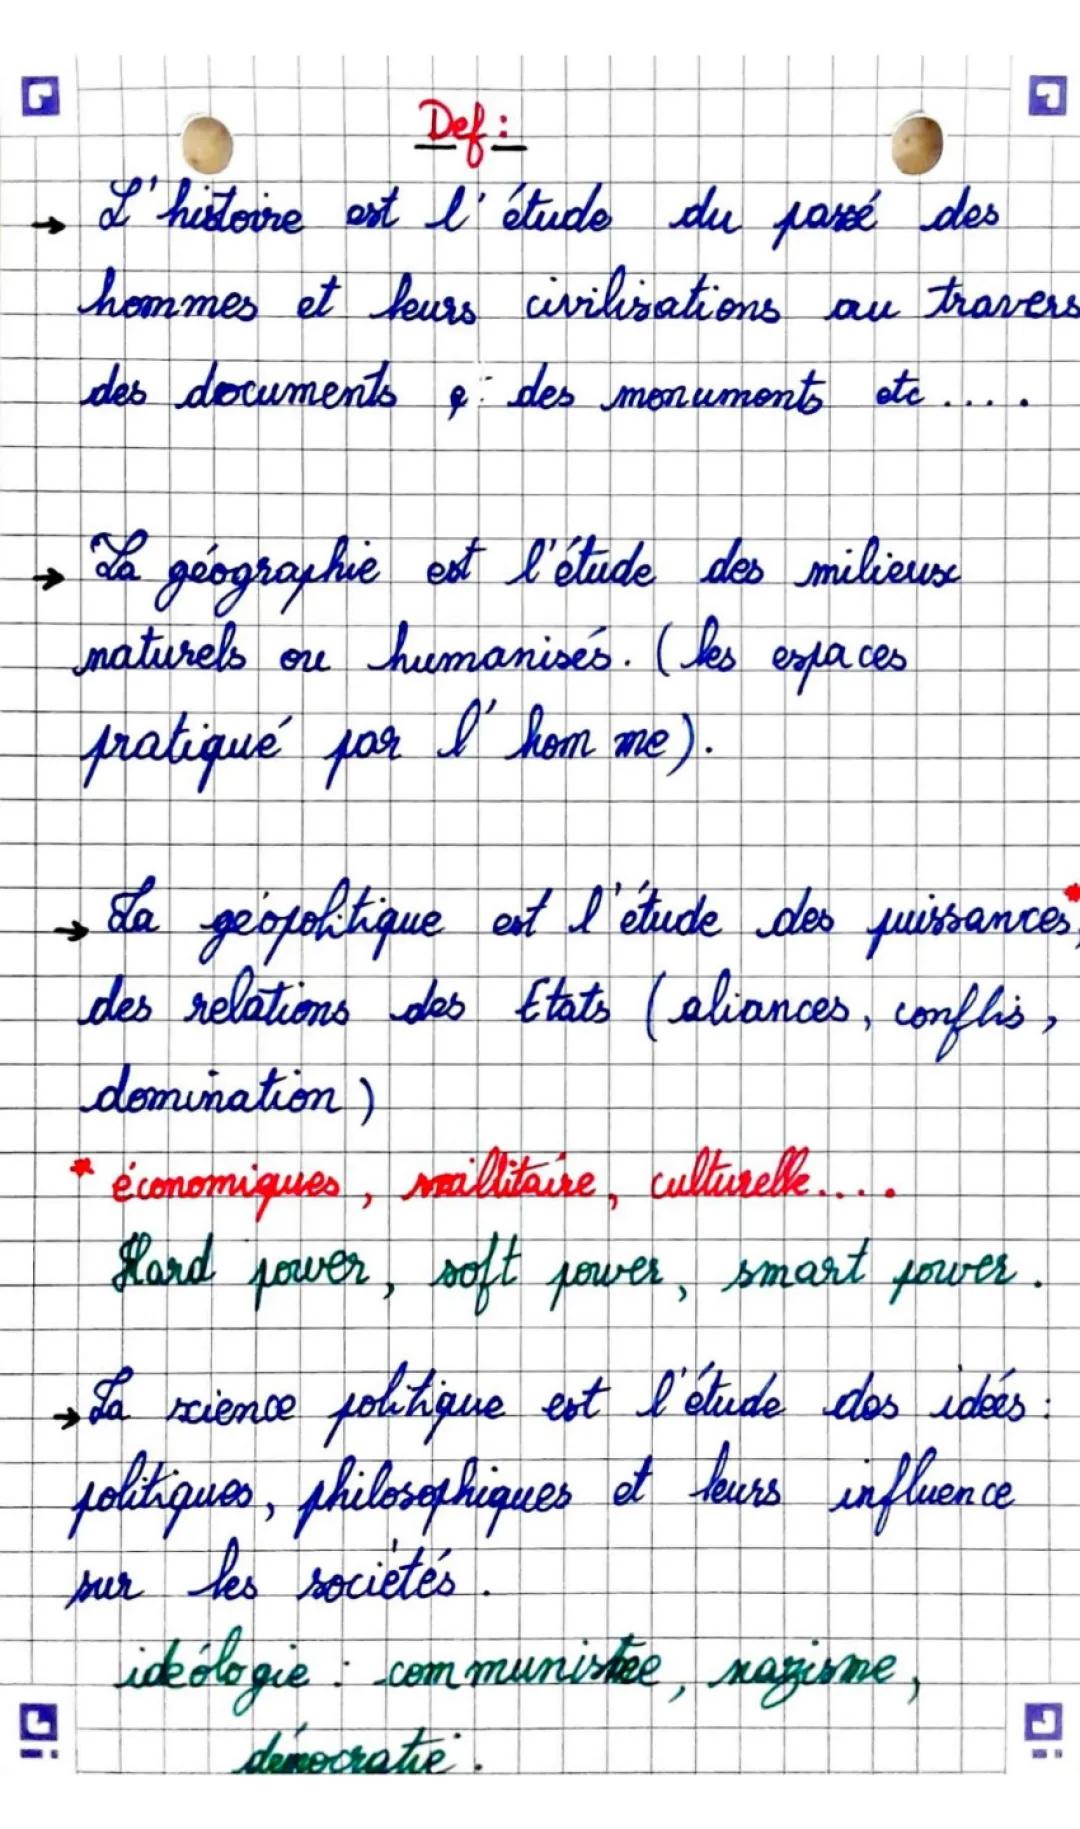 Def :
→ L'histoire est l'étude du passé des
hommes et leurs civilisations au travers
des documents, des monuments etc ....
→ La géographie est l'étude des milieux
naturels ou humanisés. (les espaces
pratiqué par l'homme).
→ La géopolitique est l'étude des puissances*,
des relations des Etats (aliances, conflis,
domination)
* économiques, millitaire, culturelle....
Hard power, soft power, smart power.
→ La science politique est l'étude des idées :
politiques, philosophiques et leurs influence
sur les sociétés.
idéologie : communiste, nazisme,
démocratie.